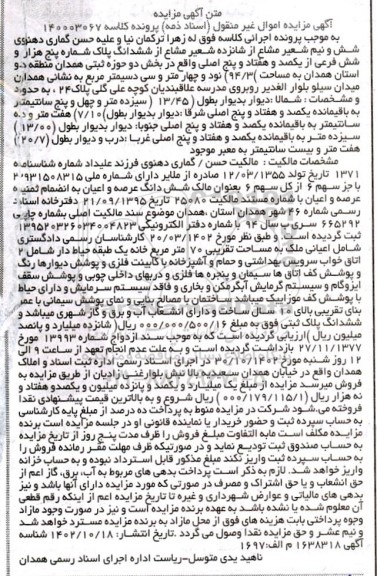 متن آگهی مزایده
آگهی مزایده اموال غیر منقول (اسناد ذمه) پرونده کلاسه ۱۴۰۰۰۳۰۶۷
به موجب پرونده اجرائی کلاسه فوق له زهرا ترکمان نیا و علیه حسن گماری دهنوی
شش و نیم شعیر مشاع از شانزده شعیر مشاع از ششدانگ پلاک شماره پنج هزار و
شش فرعی از یکصد و هفتاد و پنج اصلی واقع در بخش دو حوزه ثبتی همدان منطقه دو
استان همدان به مساحت (۹۴/۳) نود و چهار متر و سی دسیمتر مربع به نشانی همدان
میدان سیلو بلوار الغدیر روبروی مدرسه علاقبندیان کوچه علی گلی پلاک ۲۴، به حدود
و مشخصات: شمالا: دیوار بدیوار بطول (۱۳/۴۵) (سیزده متر و چهل و پنج سانتیمتر)
به باقیمانده یکصد و هفتاد و پنج اصلی شرقا: دیوار بدیوار بطول (۷/۱۰) هفت متر و ده
سانتیمتر به باقیمانده یکصد و هفتاد و پنج اصلی جنوبا: دیوار بدیوار بطول (۱۳/۰۰)
سیزده متر به باقیمانده یکصد و هفتاد و پنج اصلی غربا: درب و دیوار بطول (۷/۲۰)
هفت متر و بیست سانتیمتر به معبر موجود
مشخصات مالکیت: مالکیت حسن / گماری دهنوی فرزند علیداد شماره شناسنامه
۱۳۷۱ تاریخ تولد ۱۲/۰۳/۱۳۵۵ صادره از ملایر دارای شماره ملی ۳۹۳۱۵۰۸۳۱۵
با جز سهم ۶ از کل سهم ۶ بعنوان مالک شش دانگ عرصه و اعیان به انضمام ثمنیه
عرصه و اعیان با شماره مستند مالکیت ۲۵۰۸۰ تاریخ ۲۱/۰۹/۱۳۹۵ دفترخانه اسناد
رسمی شماره ۴۶ شهر همدان استان همدان موضوع سند مالکیت اصلی بشماره چاپی
۶۶۵۲۹۲ سری ب سال ۹۴ با شماره دفتر الکترونیکی ۱۳۹۵۲۰۳۲۶۰۳۴۰۰۴۸۲۳
ثبت گردیده است. و طبق نظر مورخ ۲۰/۰۳/۱۴۰۲ کارشناسان رسمی دادگستری
شامل اعیانی ملک به مساحت تقریبی ۷۰ متر مربع خانه یک طبقه حیاط دار شامل ۲
اتاق خواب سرویس بهداشتی و حمام و آشپزخانه با کابینت فلزی و پوشش دیوارها رنگ
و پوشش کف اتاق ها سیمان و پنجره ها فلزی و دربهای داخلی چوبی و پوشش سقف
ایزوگام و سیستم گرمایش آبگرمکن و بخاری و فاقد سیستم سرمایش و دارای حیاط
با پوشش کف موزاییک میباشد ساختمان با مصالح بنایی و نمای پوشش سیمانی با عمر
بنای تقریبی بالای ۱۰ سال ساخت و دارای انشعاب آب و برق و گاز شهری میباشد و
ششدانگ پلاک ثبتی فوق به مبلغ ۱۶/۵۰۰/۰۰۰/۰۰۰ ریال (شانزده میلیارد و پانصد
میلیون ریال) ارزیابی گردیده است که به موجب سند ازدواج شماره ۱۳۹۹۳ مورخ
۲۷/۱۱/۱۳۷۷ بازداشت گردیده است و به علت عدم انجام تعهد از ساعت ۹ الی
۱۲ روز شنبه مورخ ۳۰/۱۰/۱۴۰۲ در اجرای اسناد رسمی اداره ثبت اسناد و املاک
همدان واقع در خیابان همدان سعیدیه بالا نبش بلوارغنی زادیان از طریق مزایده به
فروش میرسد مزایده از مبلغ یک میلیارد و یکصد و پانزده میلیون و یکصدو هفتاد و
نه هزار ریال (۱/۱۱۵/۱۷۹/۰۰۰) ریال شروع و به بالاترین قیمت پیشنهادی نقدا
فروخته می.شود شرکت در مزایده منوط به پرداخت ده درصد از مبلغ پایه کارشناسی
به حساب سپرده ثبت و حضور خریدار یا نماینده قانونی او در جلسه مزایده است برنده
مزایده مکلف است مابه التفاوت مبلغ فروش را ظرف مدت پنج روز از تاریخ مزایده
به حساب صندوق ثبت تودیع نماید و در صورتیکه ظرف مهلت مقرر مانده فروش را
به حساب سپرده ثبت واریز نکند مبلغ مذکور قابل استرداد نبوده و به حساب خزانه
واریز خواهد شد. لازم به ذکر است پرداخت بدهی های مربوط به آب، برق، گاز اعم از
حق انشعاب و یا حق اشتراک و مصرف در صورتی که مورد مزایده دارای آنها باشد و نیز
بدهی های مالیاتی و عوارض شهرداری و غیره تا تاریخ مزایده اعم از اینکه رقم قطعی
آن معلوم شده یا نشده باشد به عهده برنده مزایده است و نیز در صورت وجود مازاد
وجوه پرداختی بابت هزینه های فوق از محل مازاد به برنده مزایده مسترد خواهد شد
و نیم عشر و حق مزایده نقدا وصول می گردد. تاریخ انتشار: ۱۴۰۲/۱۰/۱۸ شناسه
آگهی ۱۶۳۸۳۱۸ م الف: ۱۶۹۷
ناهید یدی متوسل-ریاست اداره اجرای اسناد رسمی همدان